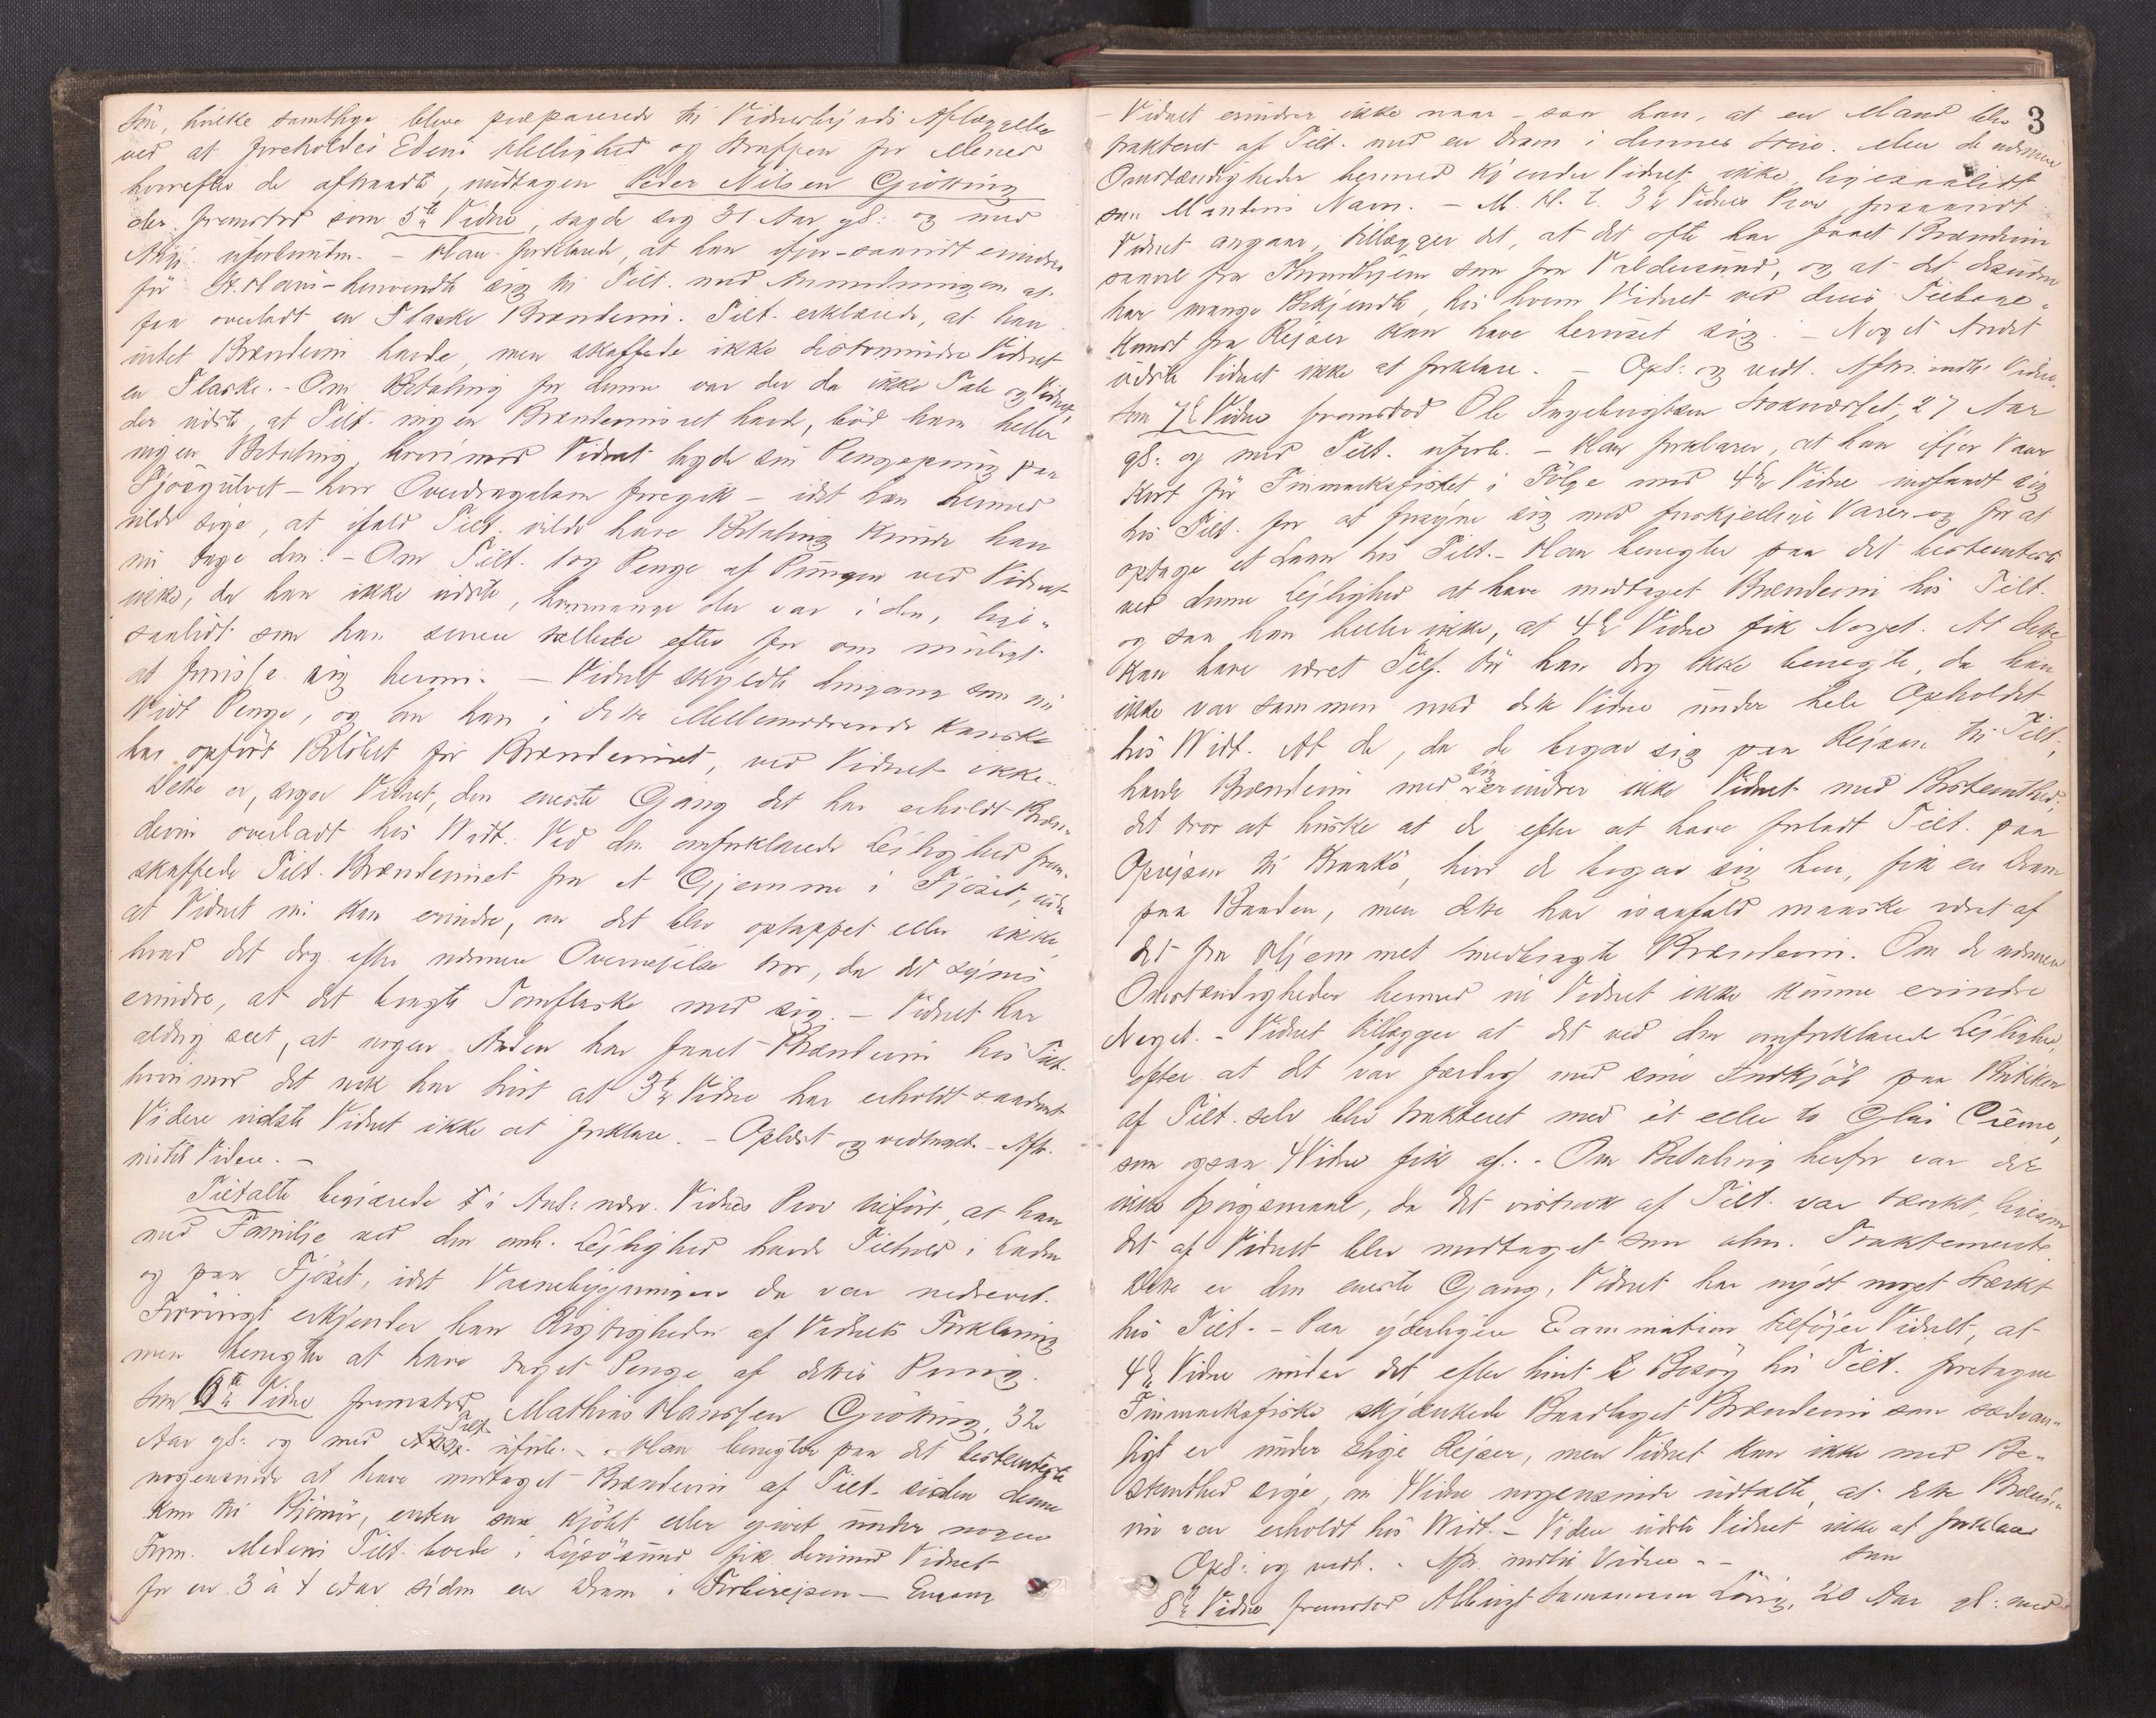 Sön, hvilke samtlige bleve præparerede til Vidnesbyrds Aflæggelse
ved at foreholdes Edens Hellighed og Straffen for Mened
hvorefter de aftraadte, undtagen Peder Nilsen Gjötting
der fremstod som 5te Vidne, sagde sig 31 Aar gl: og med
Ang: uforbunden. – Han forklarede, at han ifjor – saavidt erindres
för St. Hans – henvendte sig til Tilt. med Anmodning om at
faa overladt en Flaske Brændevin. Tilt. erklærede, at han
intet Brændevin havde, men skaffede ikke destomindre Vidnet
en Flaske. – Om Betaling for denne var der da ikke Tale og Vidnet,
der vidste, at Tilt. ingen Brændevinsret havde, böd ham heller
ingen Betaling, hvorimod Vidnet lagde sin Pengepung paa
Fjösgulvet – hvor Overdragelsen foregik – idet han hermed
vilde sige, at ifald Tilt. vilde have Betaling kunde han
nu tage den. – Om Tilt. tog Penge af Pungen ved Vidnet
ikke, da han ikke vidste, hvormange der var i den, lige-
saalidt som han senere talte efter for om muligt
at forvisse sig herom. – Vidnet skyldte dengang som nu
Widt Penge, og om han i dette Mellemværende kanske
har opfört Belöbet for Brændevinet, ved Vidnet ikke. –
Dette er, siger Vidnet, den eneste Gang det har erholdt Bræn-
devin overladt hos Widt. Ved den omforklarede Leilighed frem-
skaffede Tilt. Brændevinet fra et Gjemme i Fjöset, uden
at Vidnet nu kan erindre, om det blev optappet eller ikke,
hvad det dog efter nærmere Overveielse tror, da det synes
erindre, at det bragte Tomflaske med sig. – Vidnet har
aldrig seet, at nogen Anden har faaet Brændevin hos Tilt.
hvorimod det nok har hört at 3de Vidne har erholdt saadant
Videre vidste Vidnet ikke at forklare. – Oplæst og vedtaget. – Aftr.
indtil Videre. –
Tiltalte begjærede i Anl: nærv. Vidnes Prov tilfört, at han
med Familje ved den omh. Leilighed havde Tilhold i Laden
og paa Fjöset, idet Vaanebygningen da var nedrevet.
Forövrigt erkjender han Rigtigheden af Vidnets Forklaring
men benegter at have taget Penge af dettes Pung.
Som 6te Vidne fremstod Mathias Hanssen Gjötting, 32
Aar gl: og med Tilt. uforb. – Han benegter paa det bestemteste
nogensinde at have modtaget Brændevin af Tilt. siden denne
kom til Bjönör, enten som kjöbt eller givet under nogen
Form. Medens Tilt. boede i Lysösund fik derimod Vidnet
for en 3 à 4 Aar siden en Dram i Forbireisen – Engang
3
– Vidnet erindrer ikke naar – saa han, at en Mand blev
trakteret af Tilt. med en Dram i dennes Stue. Men de nærmere
Omstændigheder hermed kjender Vidnet ikke, ligesaalidt
som Mandens Navn. – M. H. t. 3de Vidnes Prov, forsaavidt
Vidnet angaar, tillægger det, at det ofte har faaet Brændevin
saavel fra Trondhjem som fra Valdersund, og at det desuden
har mange Bekjendte, hos hvem Vidnet ved deres Tilbage-
komst fra Rejser kan have beruset sig. – Noget Andet
vidste Vidnet ikke at forklare. – Opl: og vedt. Aftr. indtil Videre.
Som 7de Vidne fremstod Ole Ingebrigtsen Stoknæsset, 27 Aar
gl: og med Tilt. uforb. – Han forklarer, at han ifjor Vaar
kort för Finmarksfisket i Fölge med 4de Vidne indfandt sig
hos Tilt. for at forsyne sig med forskjellige Varer og for at
optage et Laan hos Tilt. – Han benegter paa det bestemteste
ved denne Lejlighed at have modtaget Brændevin hos Tilt.
og saa han heller ikke, at 4de Vidne fik Noget. At dette
kan have været Tilf. tör han dog ikke benegte, da han
ikke var sammen med dette Vidne under hele Opholdet
hos Widt. At de, da de begav sig paa Rejsen til Tilt.,
havde Brændevin med sig erindrer ikke Vidnet med Bestemthed;
det tror at huske at de efter at have forladt Tilt. paa
Oprejsen til Krankö, hvor de begav sig hen, fik en Dram
paa Baaden, men dette har isaafald maaske været af
det fra Hjemmet medbragte Brændevin. Om de nærmere
Omstændigheder hermed vil Vidnet ikke kunne erindre
Noget. – Vidnet tillægger at det ved den omforklarede Leilighed,
efter at det var færdig med sine Indkjöb paa Butiken
af Tilt. selv blev trakteret med et eller to Glas Crême,
som ogsaa 4 Vidne fik af. – Om Betaling herfor var der
ikke Spörgsmaal, da det vistnok af Tilt. var tænkt, ligesom
det af Vidnet blev modtaget som alm. Traktement.
Dette er den eneste Gang, Vidnet har nydt noget Stærkt
hos Tilt. – Paa yderligere Examination tilföjer Vidnet, at
4de Vidne under det efter hint Besög hos Tilt. foretagne
Finmarksfiske skjænkede Baadlaget Brændevin som sædvan-
ligt er under slige Rejser, men Vidnet kan ikke med Be-
stemthed sige, om 4 Vidne nogensinde udtalte, at dette Brænde-
vin var erholdt hos Widt. – Videre vidste Vidnet ikke at forklare
Opl: og vedt. – Aftr. indtil Videre. – – Som
8de Vidne fremstod Albrigt Hansen Lövig, 20 Aar gl: med